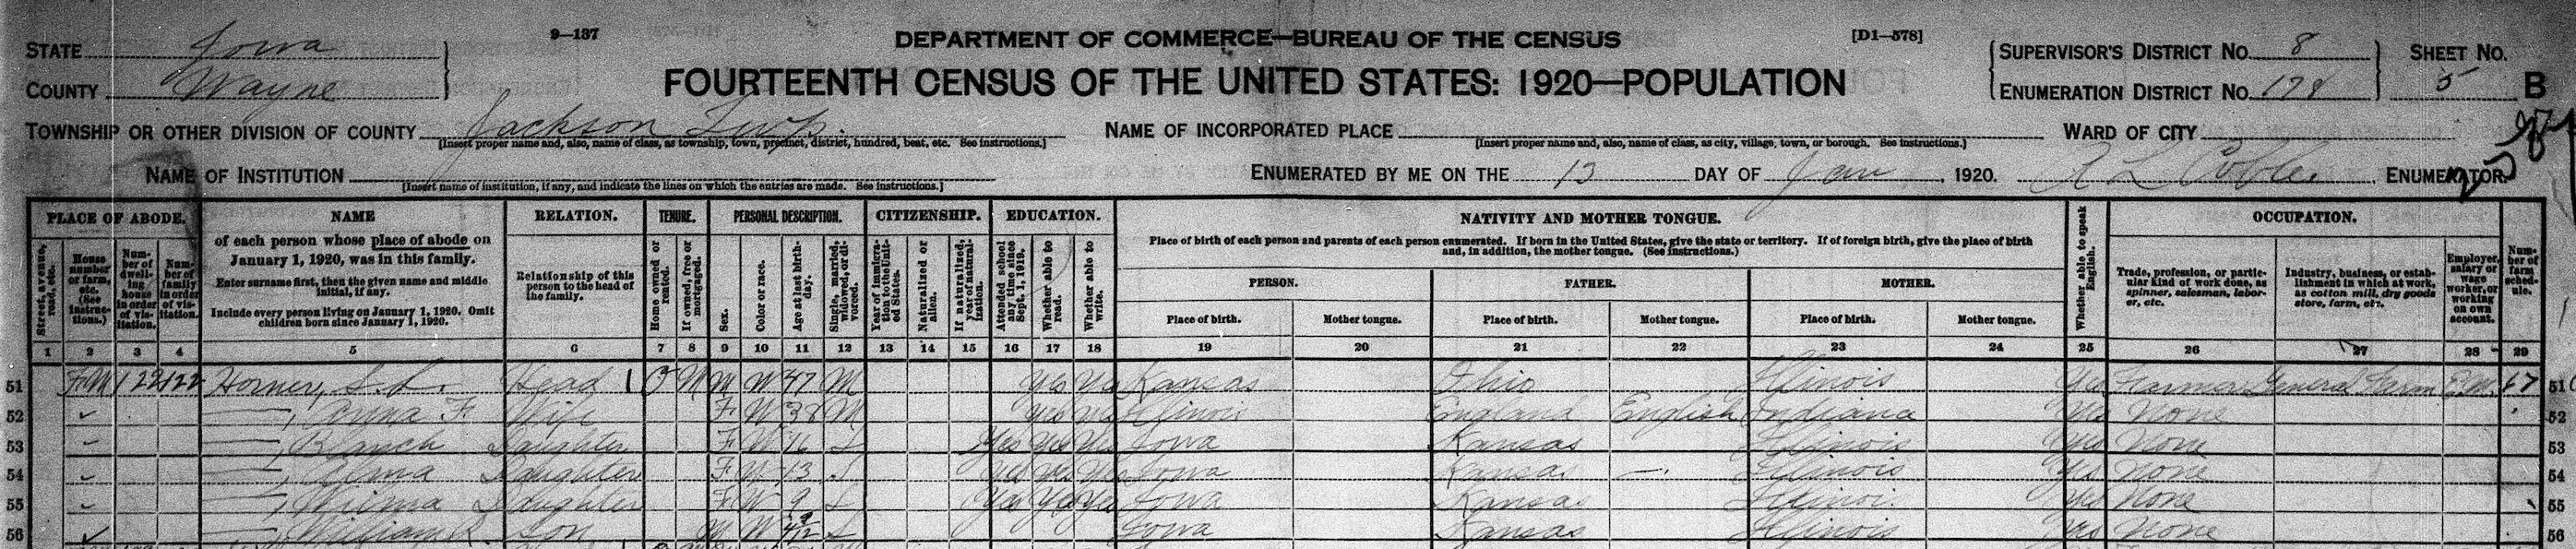 9—137
DEPARTMENT OF COMMERCE—BUREAU OF THE CENSUS
[D1—578]
FOURTEENTH CENSUS OF THE UNITED STATES: 1920—POPULATION
STATE Iowa
COUNTY Wayne
TOWNSHIP OR OTHER DIVISION OF COUNTY Jackson Twp.
[Insert proper name and, also, name of class, as township, town, precinct, district, hundred, beat, etc. See instructions.]
NAME OF INSTITUTION
[Insert name of institution, if any, and indicate the lines on which the entries are made. See instructions.]
NAME OF INCORPORATED PLACE
[Insert proper name and, also, name of class, as city, village, town, or borough. See instructions.]
ENUMERATED BY ME ON THE 13 DAY OF Jan, 1920. ENUMERATOR.
SUPERVISOR'S DISTRICT No. 8
ENUMERATION DISTRICT No. 174
SHEET No. 5 B
WARD OF CITY
PLACE OF ABODE.
Street, avenue, road, etc.
House number or farm, etc. (See instructions.)
Number of dwelling house in order of visitation.
Number of family in order of visitation.
NAME
of each person whose place of abode on January 1, 1920, was in this family.
Enter surname first, then the given name and middle initial, if any.
Include every person living on January 1, 1920. Omit children born since January 1, 1920.
RELATION.
Relationship of this person to the head of the family.
TENURE.
Home owned or rented.
If owned, free or mortgaged.
PERSONAL DESCRIPTION.
Sex.
Color or race.
Age at last birthday.
Single, married, widowed, or divorced.
CITIZENSHIP.
Year of immigration to the United States.
Naturalized or alien.
If naturalized, year of naturalization.
EDUCATION.
Attended school any time since Sept. 1, 1919.
Whether able to read.
Whether able to write.
NATIVITY AND MOTHER TONGUE.
Place of birth of each person and parents of each person enumerated. If born in the United States, give the state or territory. If of foreign birth, give the place of birth and, in addition, the mother tongue. (See instructions.)
PERSON.
Place of birth.
Mother tongue.
FATHER.
Place of birth.
Mother tongue.
MOTHER.
Place of birth.
Mother tongue.
Whether able to speak English.
OCCUPATION.
Trade, profession, or particular kind of work done, as spinner, salesman, laborer, etc.
Industry, business, or establishment in which at work, as cotton mill, dry goods store, farm, etc.
Employer, salary or wage worker, or working on own account.
Number of farm schedule.
1 2 3 4 5 6 7 8 9 10 11 12 13 14 15 16 17 18 19 20 21 22 23 24 25 26 27 28 29
51 FM 122 122 Horner, S. L. Head 1 O M M W 47 M yes yes Kansas Ohio Illinois yes Farmer General Farm Em. 67 51
52 —, Anna F. Wife F W 38 M yes yes Illinois England English Indiana yes None 52
53 —, Blanch Daughter F W 16 S Yes yes yes Iowa Kansas Illinois yes None 53
54 —, Alma Daughter F W 13 S yes yes yes Iowa Kansas — Illinois yes None 54
55 —, Wilma Daughter F W 9 S yes yes yes Iowa Kansas Illinois yes None 55
56 —, William R. Son M W 4 9/12 S Iowa Kansas Illinois yes None 56